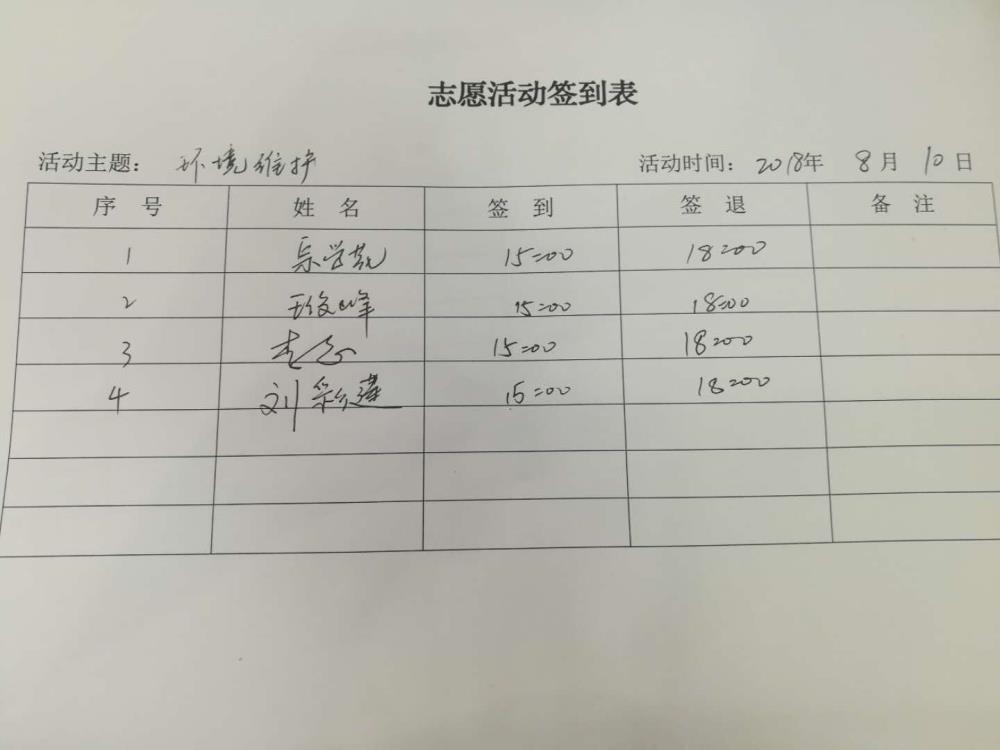 志愿活动签到表
活动主题： 环境维护 活动时间： 2018年 8月 10日
序 号 姓 名 签 到 签 退 备 注
1 15:00 18:00
2 峰 15:00 18:00
3 15:00 18:00
4 刘 15:00 18:00